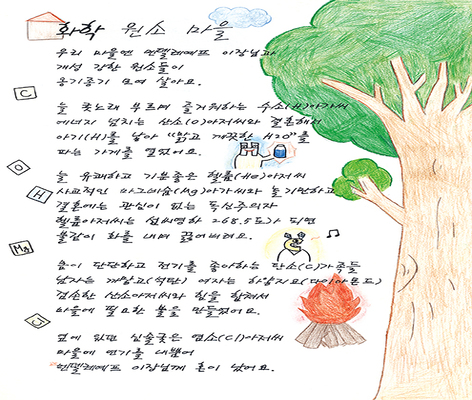 화학 원소 마을
우리 마을엔 멘델레예프 이장님과
개성 강한 원소들이
옹기종기 모여 살아요.
늘 콧노래 부르며 즐거워하는 수소(H)아가씨
에너지 넘치는 산소(O)아저씨와 결혼해서
아기(H)를 낳아 "맑고 깨끗한 H2O"를
파는 가게를 열었어요.
늘 유쾌하고 기분좋은 헬륨(He)아저씨
사교적인 마그네슘(Mg)아가씨와 놀기만하고
결혼에는 관심이 없는 독신주의자
헬륨아저씨는 섭씨영하 268.5도가 되면
불같이 화를 내며 끓어버려요.
몸이 단단하고 전기를 좋아하는 탄소(C)가족들
남자는 까맣고(석탄) 여자는 하얗지요(다이아몬드)
검손한 산소아저씨와 힘을 합쳐서
마을에 필요한 불을 만들었어요.
앞에 있던 심술궂은 염소(Cl)아저씨
마을에 연기를 내뿜어
멘델레예프 이장님께 혼이 났어요.
C
O
H
Mg